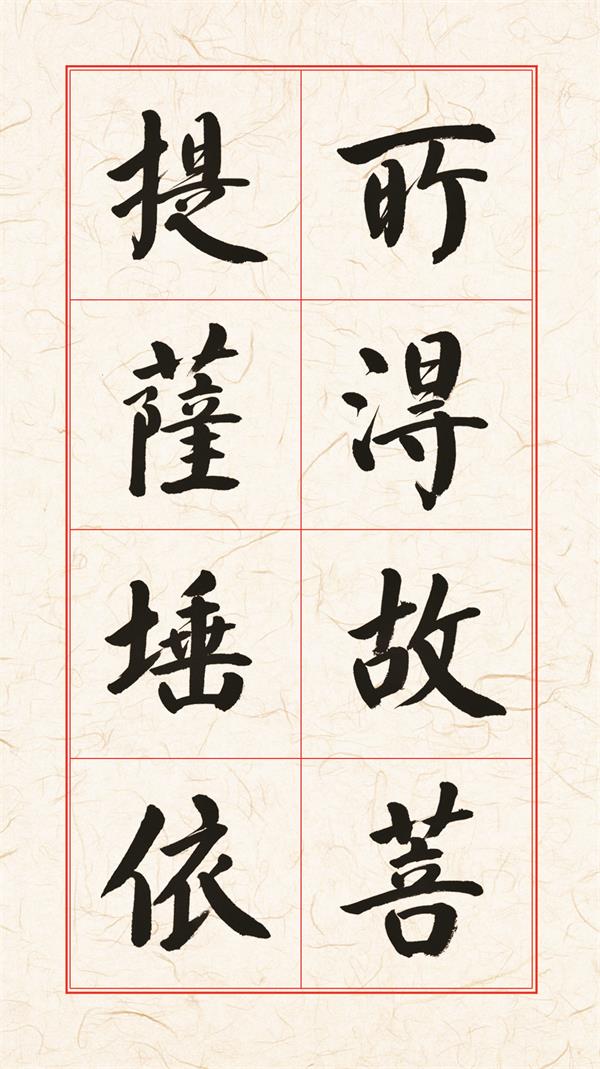 所得故菩
提薩埵依